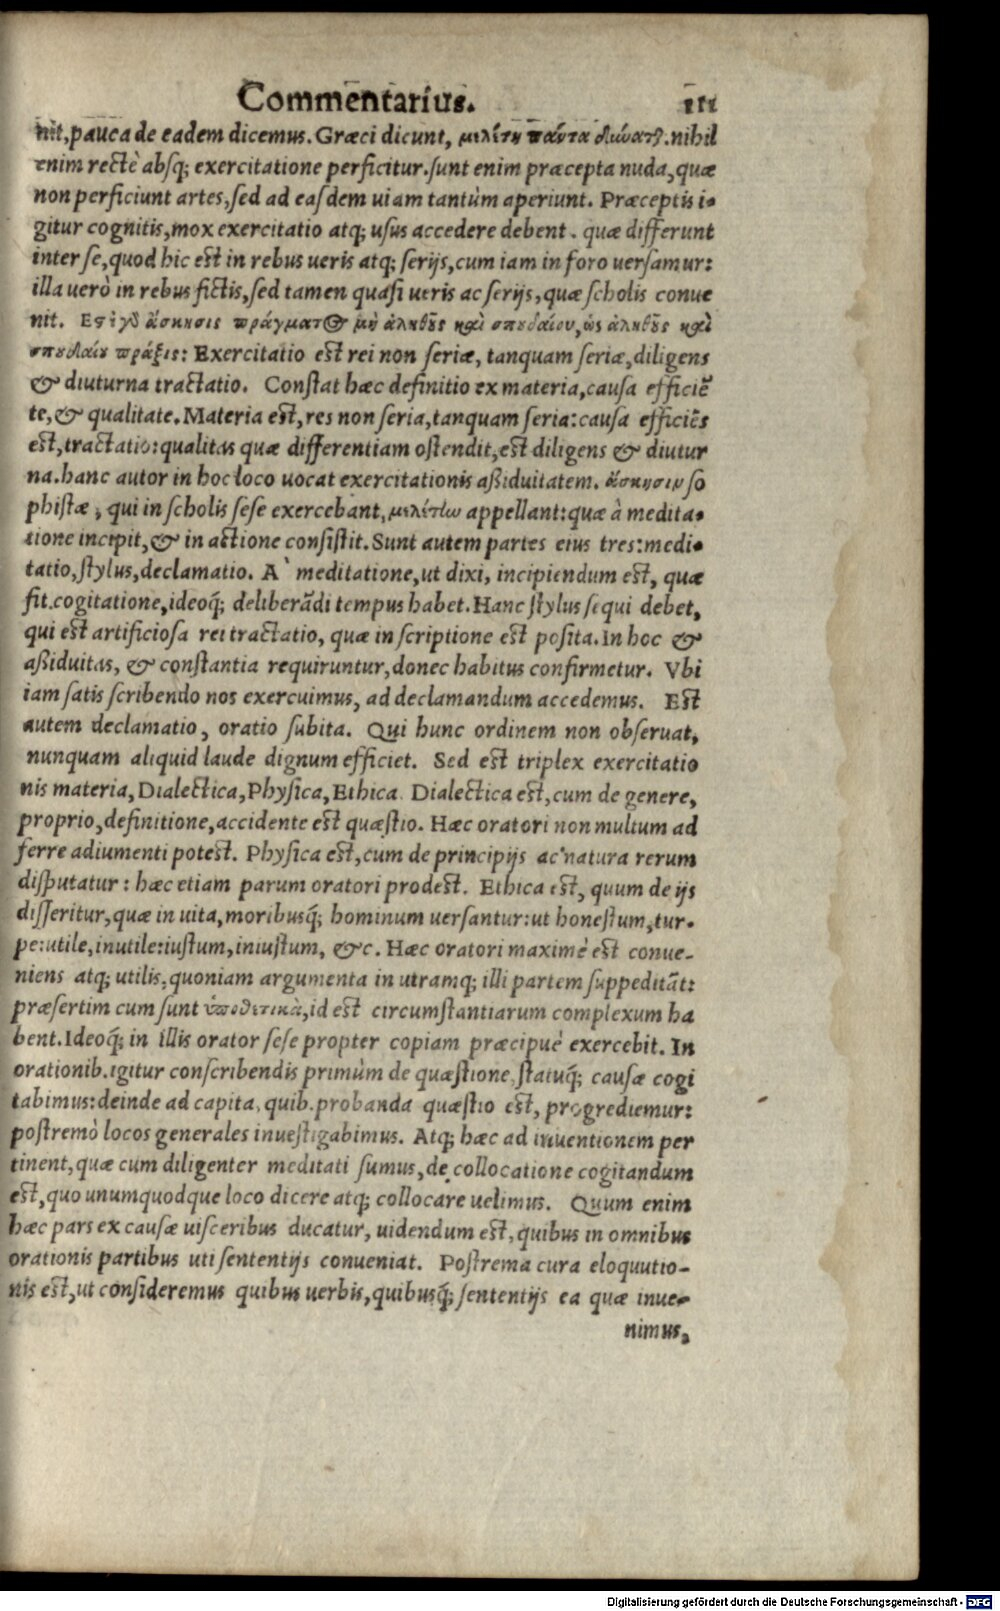 Commentarius. 111
nit, pauca de eadem dicemus. Græci dicunt, μελέτη πάντα δύναται. nihil
enim rectè absq; exercitatione perficitur. sunt enim præcepta nuda, quæ
non perficiunt artes, sed ad easdem uiam tantùm aperiunt. Præceptis i-
gitur cognitis, mox exercitatio atq; usus accedere debent. quæ differunt
inter se, quod hic est in rebus ueris atq; serijs, cum iam in foro uersamur:
illa uerò in rebus fictis, sed tamen quasi ueris ac serijs, quæ scholis conue
nit. Εστι γὸ ἄσκησις πράγματος μὴ ἀληθοῦς καὶ σπουδαίου, ὡς ἀληθοῦς καὶ
σπουδαίου πρᾶξις: Exercitatio est rei non seriæ, tanquam seriæ, diligens
& diuturna tractatio. Constat hæc definitio ex materia, causa efficiē
te, & qualitate. Materia est, res non seria, tanquam seria: causa efficiēs
est, tractatio: qualitas quæ differentiam ostendit, est diligens & diutur
na. hanc autor in hoc loco uocat exercitationis aßiduitatem. ἄσκησιν so
phistæ, qui in scholis sese exercebant, μελέτην appellant: quæ à medita-
tione incipit, & in actione consistit. Sunt autem partes eius tres: medi-
tatio, stylus, declamatio. A` meditatione, ut dixi, incipiendum est, quæ
fit cogitatione, ideoq́; deliberādi tempus habet. Hanc stylus sequi debet,
qui est artificiosa rei tractatio, quæ in scriptione est posita. In hoc &
aßiduitas, & constantia requiruntur, donec habitus confirmetur. Vbi
iam satis scribendo nos exercuimus, ad declamandum accedemus. Est
autem declamatio, oratio subita. Qui hunc ordinem non obseruat,
nunquam aliquid laude dignum efficiet. Sed est triplex exercitatio
nis materia, Dialectica, Physica, Ethica. Dialectica est, cum de genere,
proprio, definitione, accidente est quæstio. Hæc oratori non multum ad
ferre adiumenti potest. Physica est, cum de principijs ac natura rerum
disputatur: hæc etiam parum oratori prodest. Ethica est, quum de ijs
disseritur, quæ in uita, moribusq́; hominum uersantur: ut honestum, tur-
pe: utile, inutile: iustum, iniustum, &c. Hæc oratori maximè est conue-
niens atq; utilis, quoniam argumenta in utramq; illi partem suppeditāt:
præsertim cum sunt ὑποθετικὰ, id est circumstantiarum complexum ha
bent. Ideoq́; in illis orator sese propter copiam præcipuè exercebit. In
orationib. igitur conscribendis primùm de quæstione, statuq́; causæ cogi
tabimus: deinde ad capita, quib. probanda quæstio est, progrediemur:
postremò locos generales inuestigabimus. Atq; hæc ad inuentionem per
tinent, quæ cum diligenter meditati sumus, de collocatione cogitandum
est, quo unumquodque loco dicere atq; collocare uelimus. Quum enim
hæc pars ex causæ uisceribus ducatur, uidendum est, quibus in omnibus
orationis partibus uti sententijs conueniat. Postrema cura eloquutio-
nis est, ut consideremus quibus uerbis, quibusq́; sententijs ea quæ inue-
nimus,
Digitalisierung gefördert durch die Deutsche Forschungsgemeinschaft - DFG